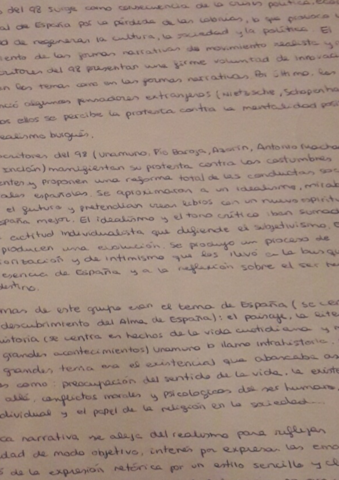 del 98 surge como consecuencia de la crisis política, eco
al de España por la pérdida de las colonias, lo que provoca
d de regenerar la cultura, la sociedad y la política. El
ento de las formas narrativas de movimiento realista y
critores del 98 presentan una firme voluntad de innovac
en los temas como en las formas narrativas. Por último, las
pensadores extranjeros (Nietzsche, Schopenha
os ellos se percibe la protesta contra la mentalidad posi
realismo burgués.
scritores del 98 (Unamuno, Pío Baroja, Azorín, Antonio Machad
Inclán) manifiestan su protesta contra las costumbres
entes y proponen una reforma total de las conductas soc
ales españolas. Se aproximaron a un idealismo,
el futuro y pretendían crear libros con un nuevo espíritu
spaña mejor. El idealismo y el tono crítico iban sumado
actitud individualista que defiende el subjetivismo.
producen una evolución. Se produjo un proceso de
y de intimismo que los llevó a la busqu
esencia de España y a la reflexión sobre el ser
destino.
mas de este grupo eran el tema de España (se cen
descubrimiento del Alma de España): el paisaje, la liter
historia (se centra en hechos de la vida cotidiana y n
grandes acontecimientos) Unamuno lo llama intrahistoria.
grandes tema era el existencial que abarcaba as
s como: preocupación del sentido de la vida, la existe
allá, conflictos morales y psicológicos del ser humano,
dividual y el papel de la religión en la sociedad...
ca narrativa se aleja del realismo para reflejar
idad de modo objetivo, interés por expresar las emo
de la expresión retórica por un estilo sencillo y cl